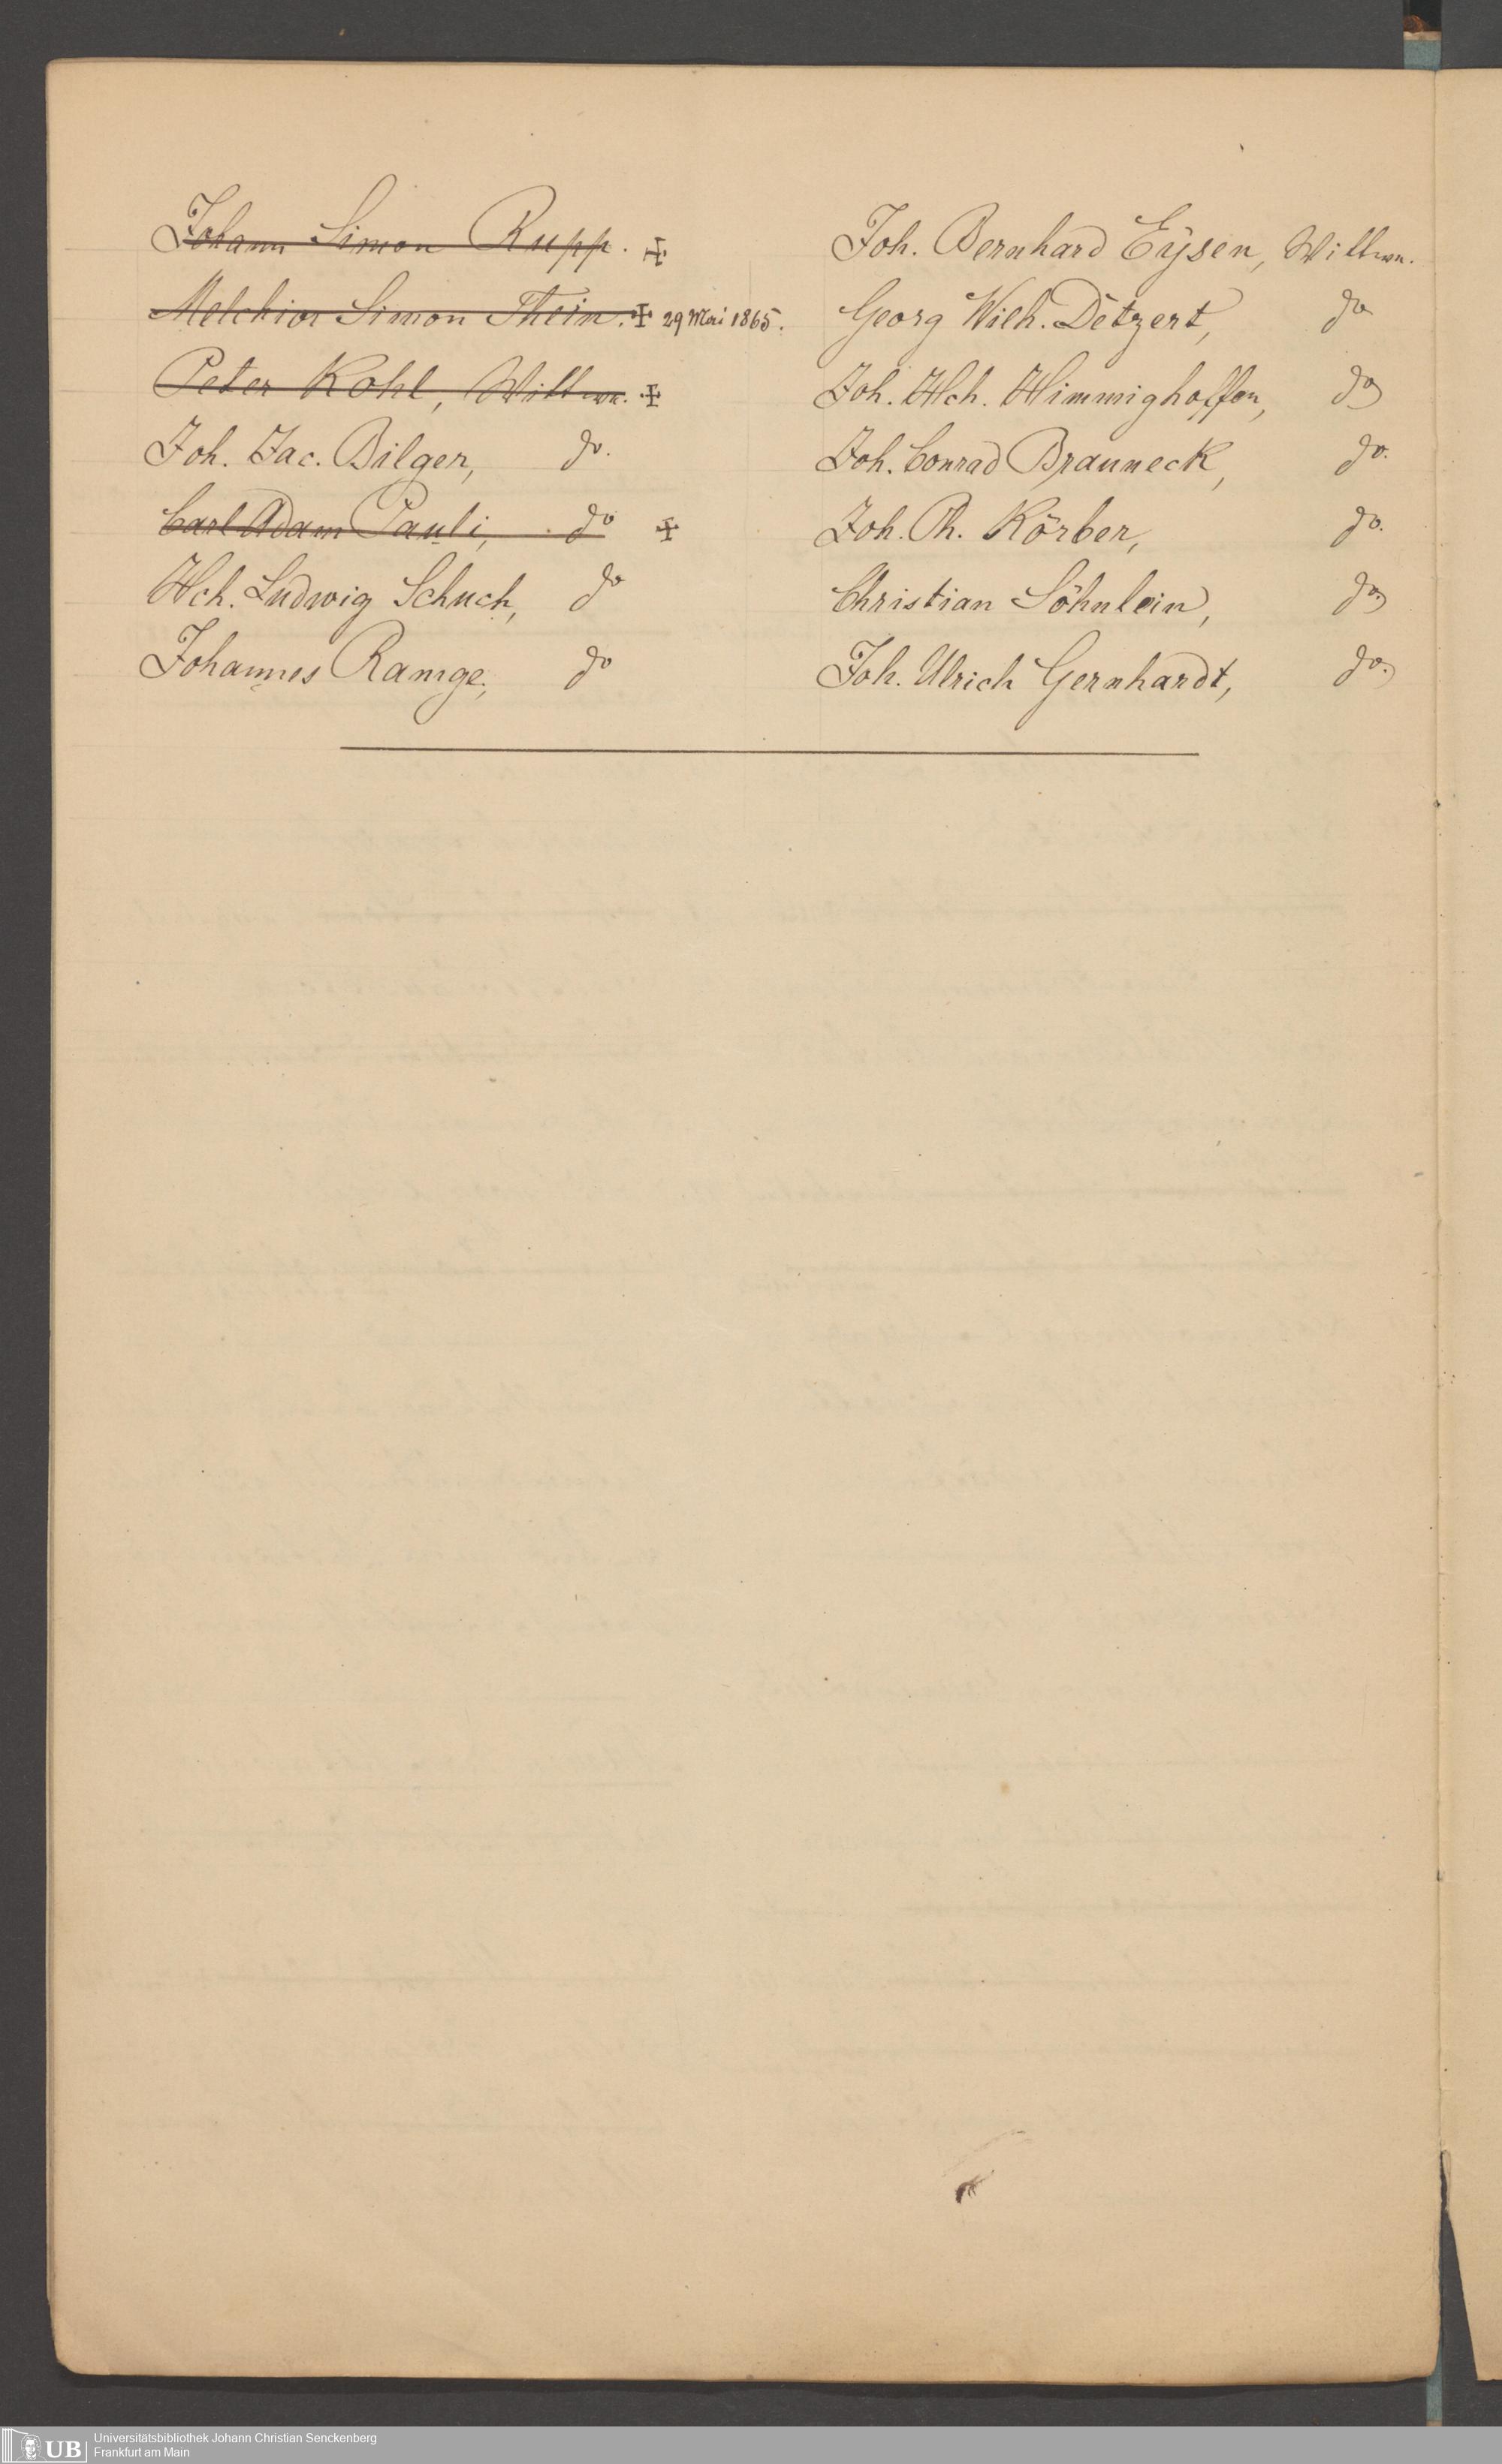 Johann Simon Rupp. ✠
Melchior Simon Thein. ✠ 29 Mai 1865.
Peter Kohl, Wittwe. ✠
Joh. Jac. Bilger, do.
Carl Adam Pauli, do ✠
Hch. Ludwig Schuch, do
Johannes Ramge, do
Joh. Bernhard Eÿsen, Wittwe.
Georg Wilh. Detzert, do
Joh. Hch. Himmighoffen, do
Joh. Conrad Brauneck, do.
Joh. Ph. Körber, do.
Christian Söhnlein, do.
Joh. Ulrich Gernhardt, do.
UB
Universitätsbibliothek Johann Christian Senckenberg
Frankfurt am Main